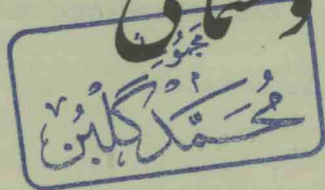 مجموعۀ
محمد گلبن